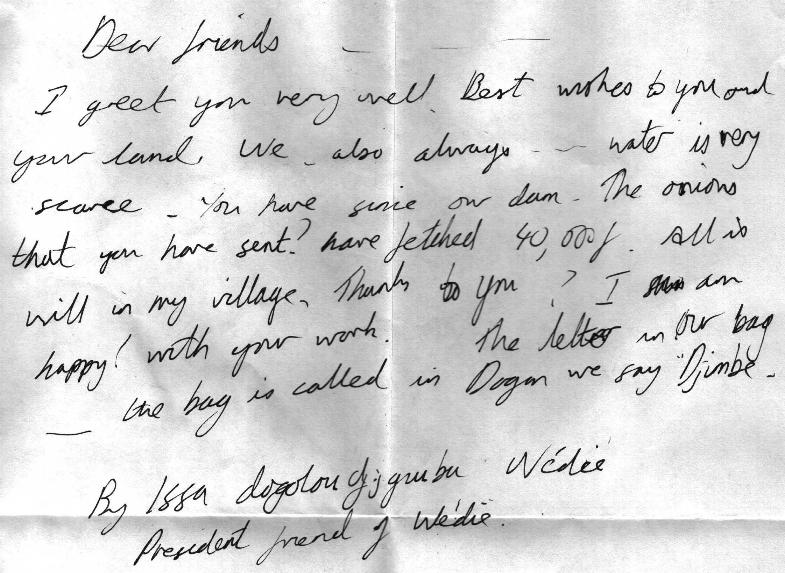 Dear friends
I greet you very well. Best wishes to you and
your land. We also always - - water is very
scarce - You have since our dam. The onions
that you have sent? have fetched 40,000f. All is
will in my village. Thanks to you ? I am
happy! with your work. The letter in Our bag
the bag is called in Dogon we say "Djimbé.
By Issa dogolou Wédié
President friend of Wédié.